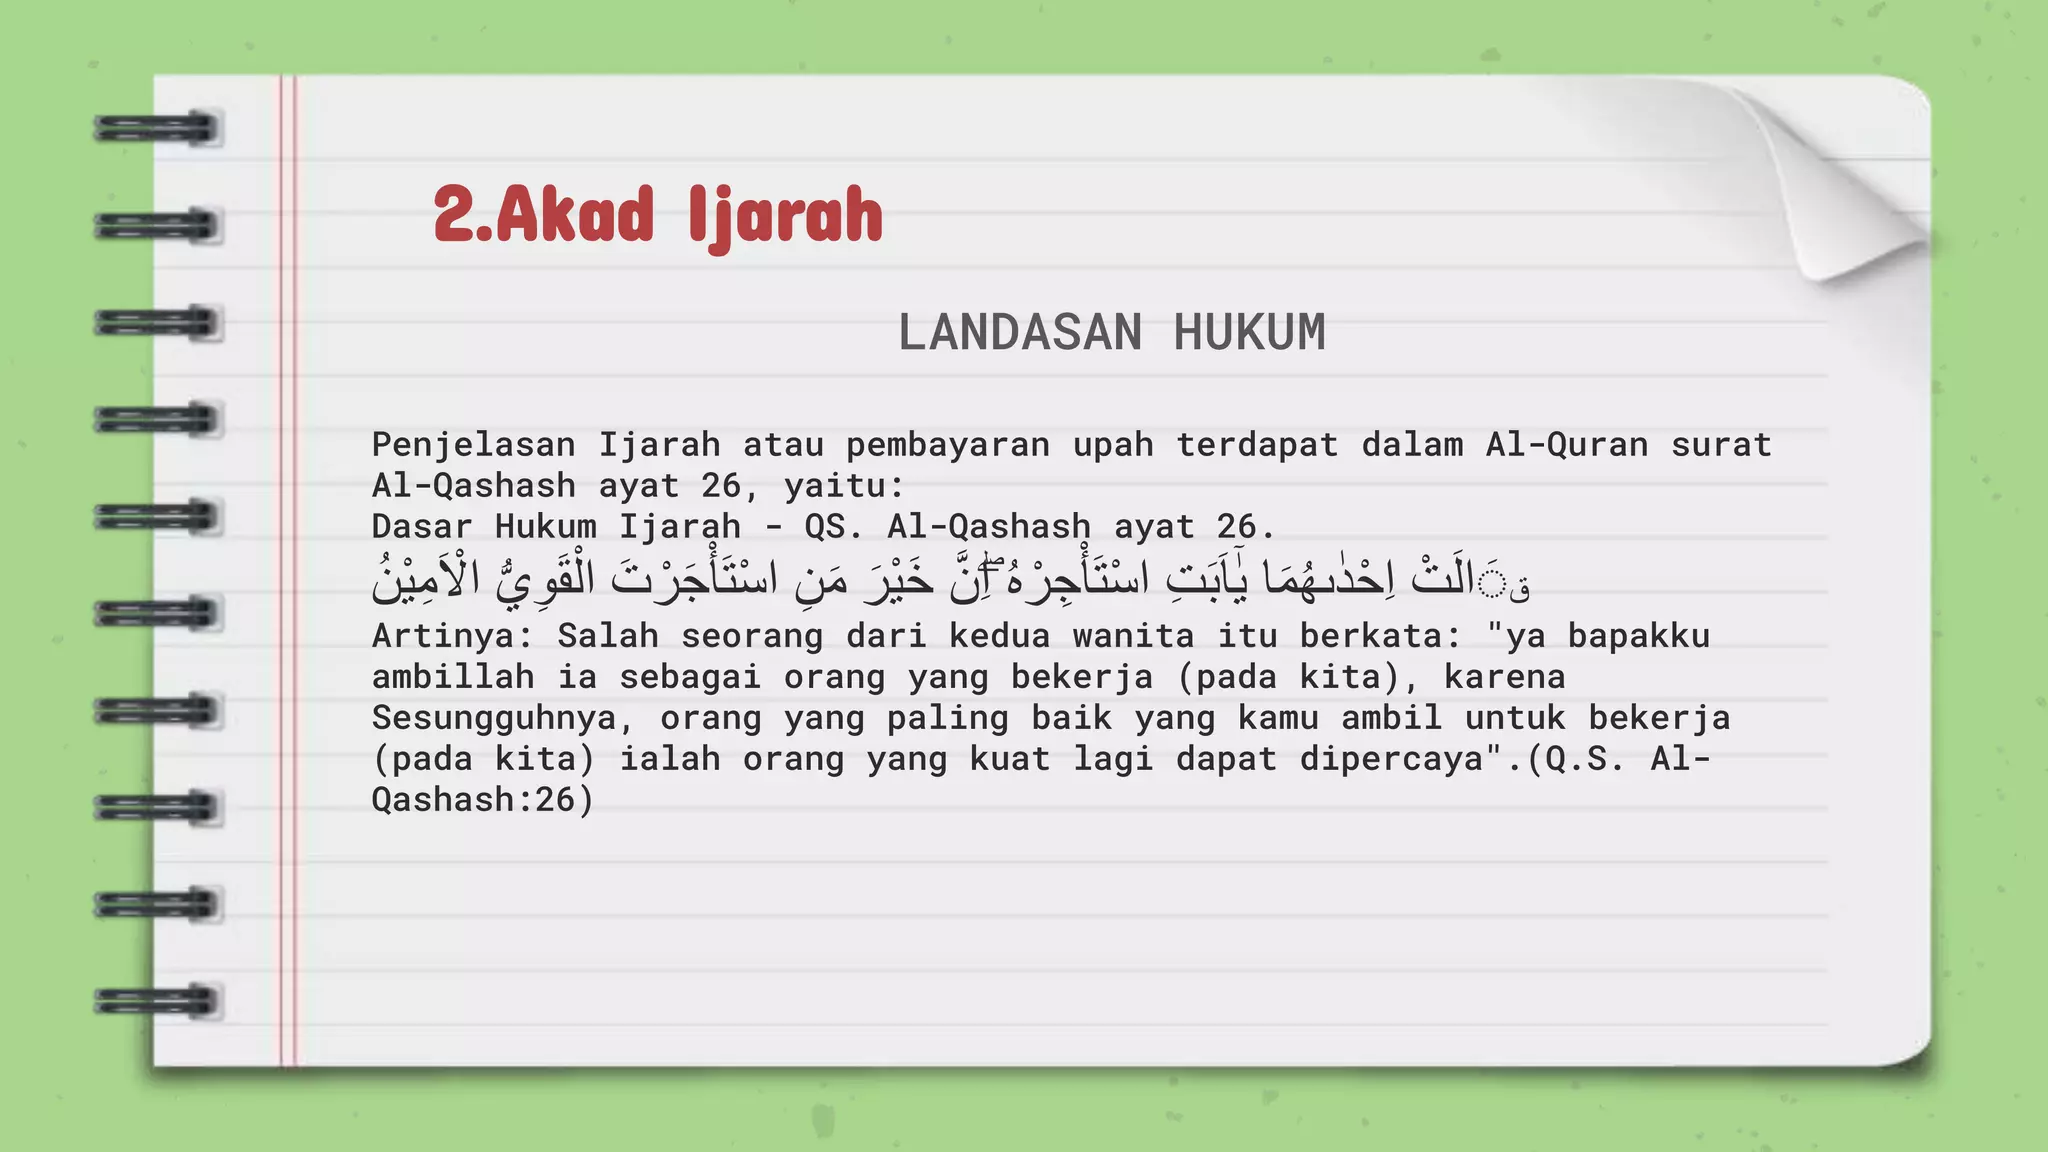 2.Akad Ijarah
LANDASAN HUKUM
Penjelasan Ijarah atau pembayaran upah terdapat dalam Al-Quran surat
Al-Qashash ayat 26, yaitu:
Dasar Hukum Ijarah - QS. Al-Qashash ayat 26.
قَالَتْ اِحْدٰىهُمَا يٰٓاَبَتِ اسْتَأْجِرْهُ ۖاِنَّ خَيْرَ مَنِ اسْتَأْجَرْتَ الْقَوِيُّ الْاَمِيْنُ
Artinya: Salah seorang dari kedua wanita itu berkata: "ya bapakku
ambillah ia sebagai orang yang bekerja (pada kita), karena
Sesungguhnya, orang yang paling baik yang kamu ambil untuk bekerja
(pada kita) ialah orang yang kuat lagi dapat dipercaya".(Q.S. Al-
Qashash:26)